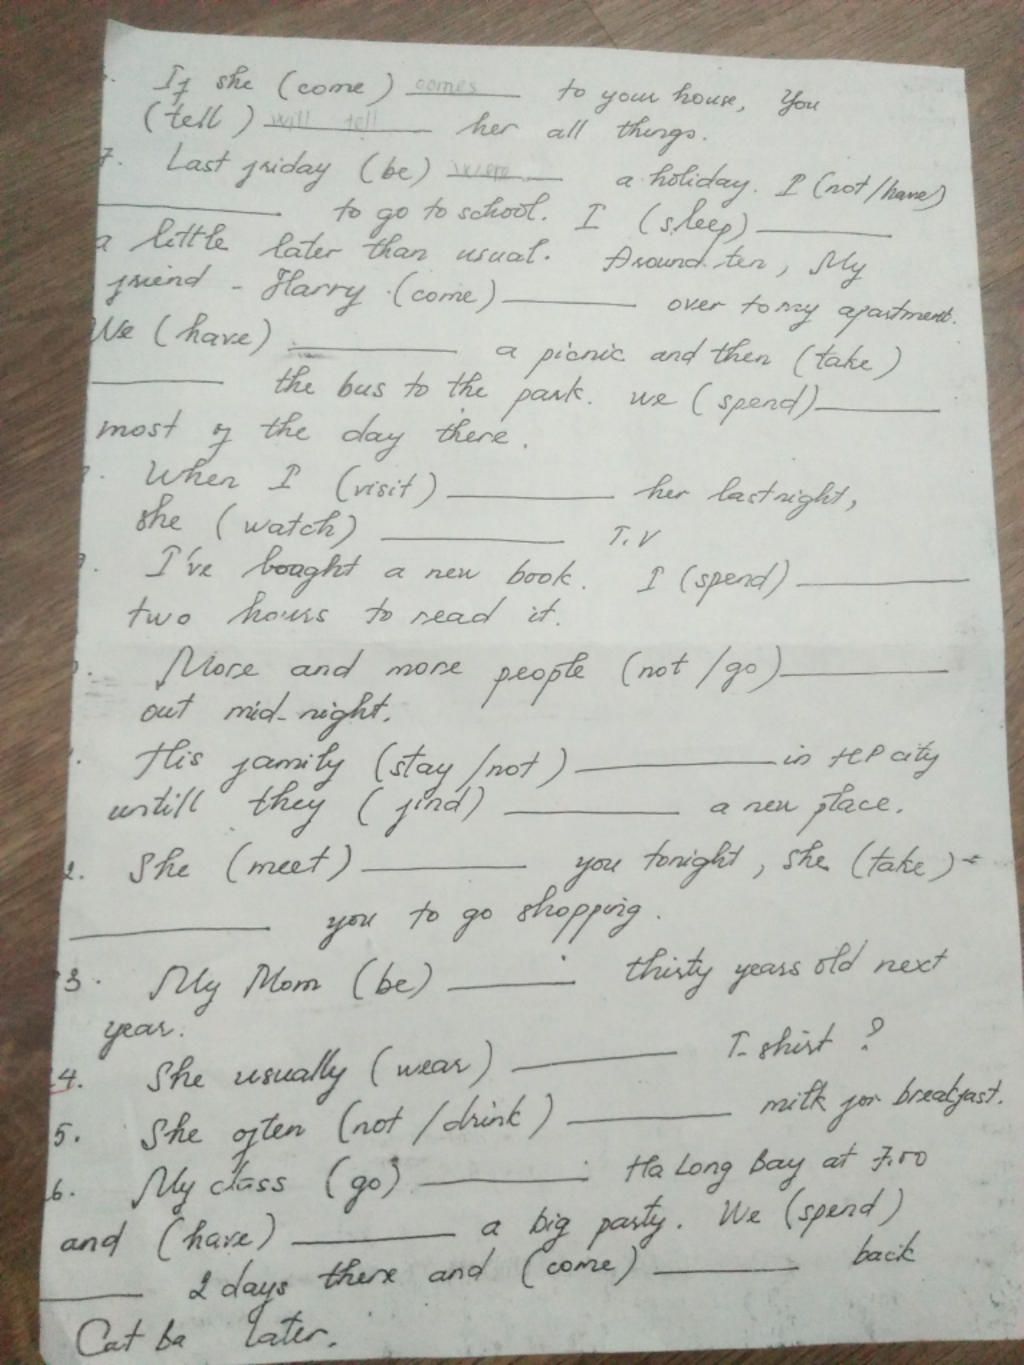 If she (come) comes to your house, You
(tell) will tell her all things.
7. Last friday (be) were a holiday. I (not/have)
to go to school. I (sleep)
a little later than usual. Around ten, My
friend - Harry (come) over to my apartment.
We (have) a picnic and then (take)
the bus to the park. we (spend)
most of the day there.
When I (visit) her last night,
she (watch) T.V
I've bought a new book. I (spend)
two hours to read it.
More and more people (not/go)
out mid-night.
His family (stay/not) in HP city
untill they (find) a new place.
2. She (meet) you tonight, she (take)
you to go shopping.
3. My Mom (be) thirty years old next
year.
4. She usually (wear) T-shirt ?
5. She often (not/drink) milk for breakfast.
6. My class (go) Ha Long Bay at 7.00
and (have) a big party. We (spend)
2 days there and (come) back
Cat ba later.